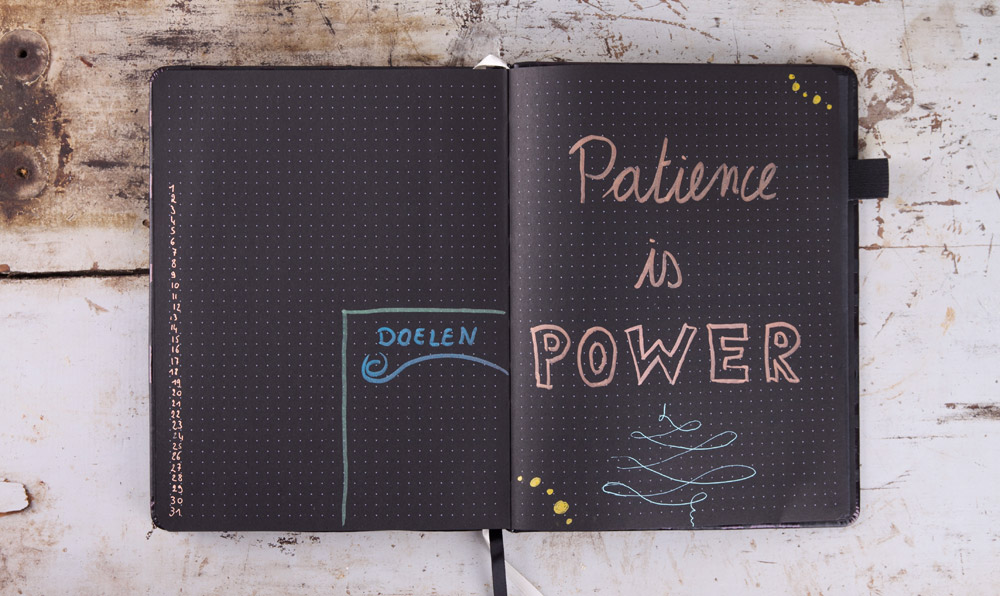 1
2
3
4
5
6
7
8
9
10
11
12
13
14
15
16
17
18
19
20
21
22
23
24
25
26
27
28
29
30
31
DOELEN
Patience
is
POWER